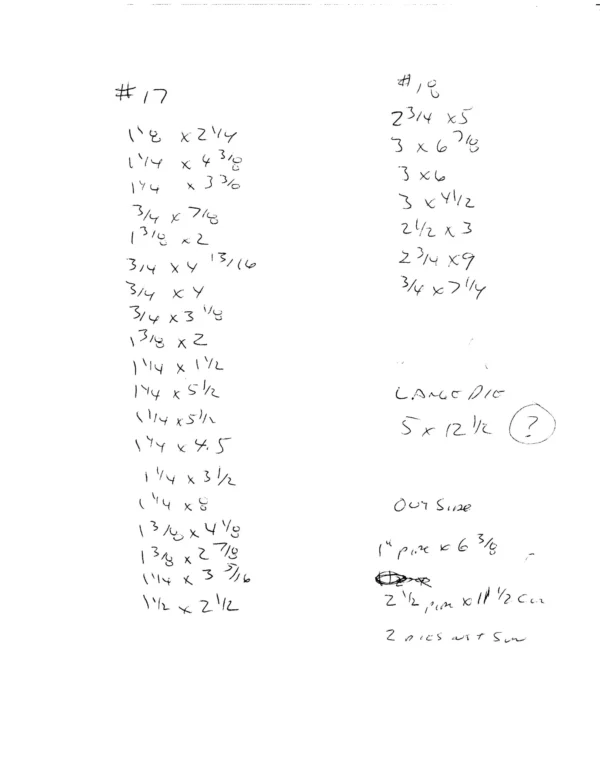 #17
1 1/8 x 2 1/4
1 1/4 x 4 3/8
1 1/4 x 3 3/8
3/4 x 7/8
1 3/8 x 2
3/4 x 4 13/16
3/4 x 4
3/4 x 3 1/8
1 3/8 x 2
1 1/4 x 1 1/2
1 1/4 x 5 1/2
1 1/4 x 5 1/2
1 1/4 x 4.5
1 1/4 x 3 1/2
1 1/4 x 8
1 3/8 x 4 1/8
1 3/8 x 2 7/8
1 1/4 x 3 5/16
1 1/2 x 2 1/2
#18
2 3/4 x 5
3 x 6 7/8
3 x 6
3 x 4 1/2
2 1/2 x 3
2 3/4 x 9
3/4 x 7 1/4
LARGE DIE
5 x 12 1/2 ?
OUTSIDE
1" x 6 3/8
2 1/2 x 11 1/2
2